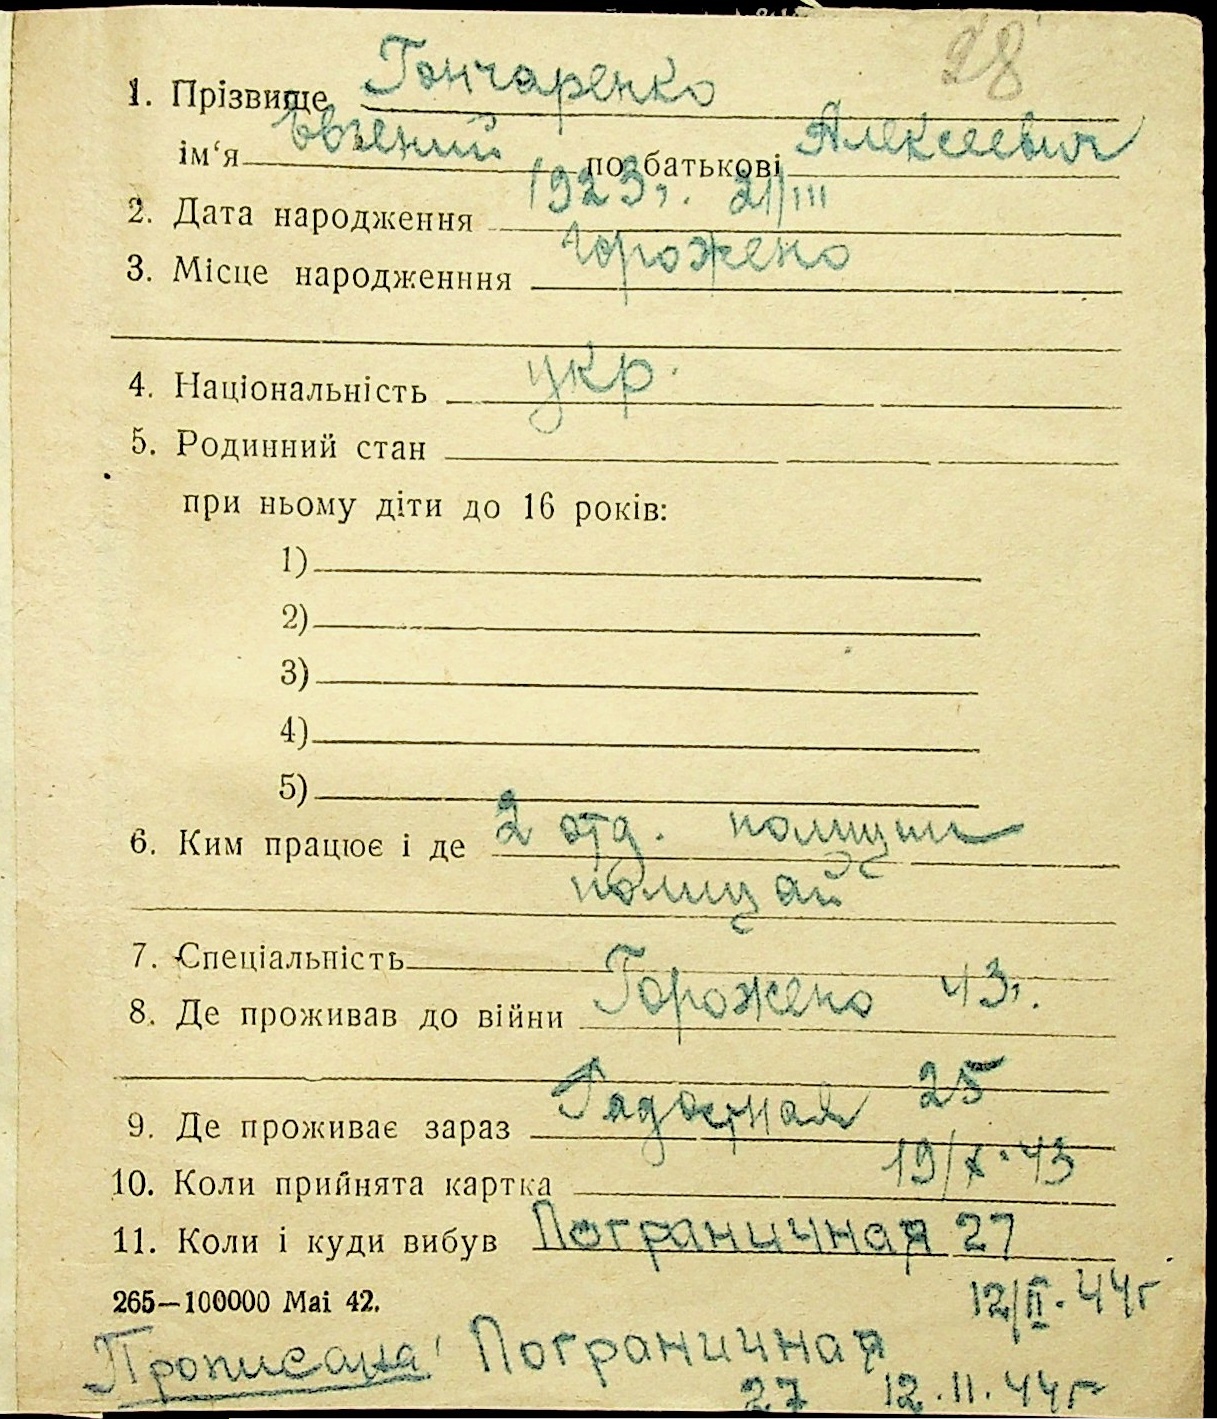 28
1. Прізвище Гончаренко
ім‘я Евгений по батькові Алексеевич
2. Дата народження 1923г. 21/III
3. Місце народженння Горожено
4. Національність укр.
5. Родинний стан
при ньому діти до 16 років:
1)
2)
3)
4)
5)
6. Ким працює і де 2 отд. полиции
полицай
7. Спеціальність
8. Де проживав до війни Горожено 43г.
9. Де проживає зараз Радостная 25
10. Коли прийнята картка 19/X.43
11. Коли і куди вибув Пограничная 27
265—100000 Mai 42. 12/II.44г
Прописана Пограничная
27 12.II.44г